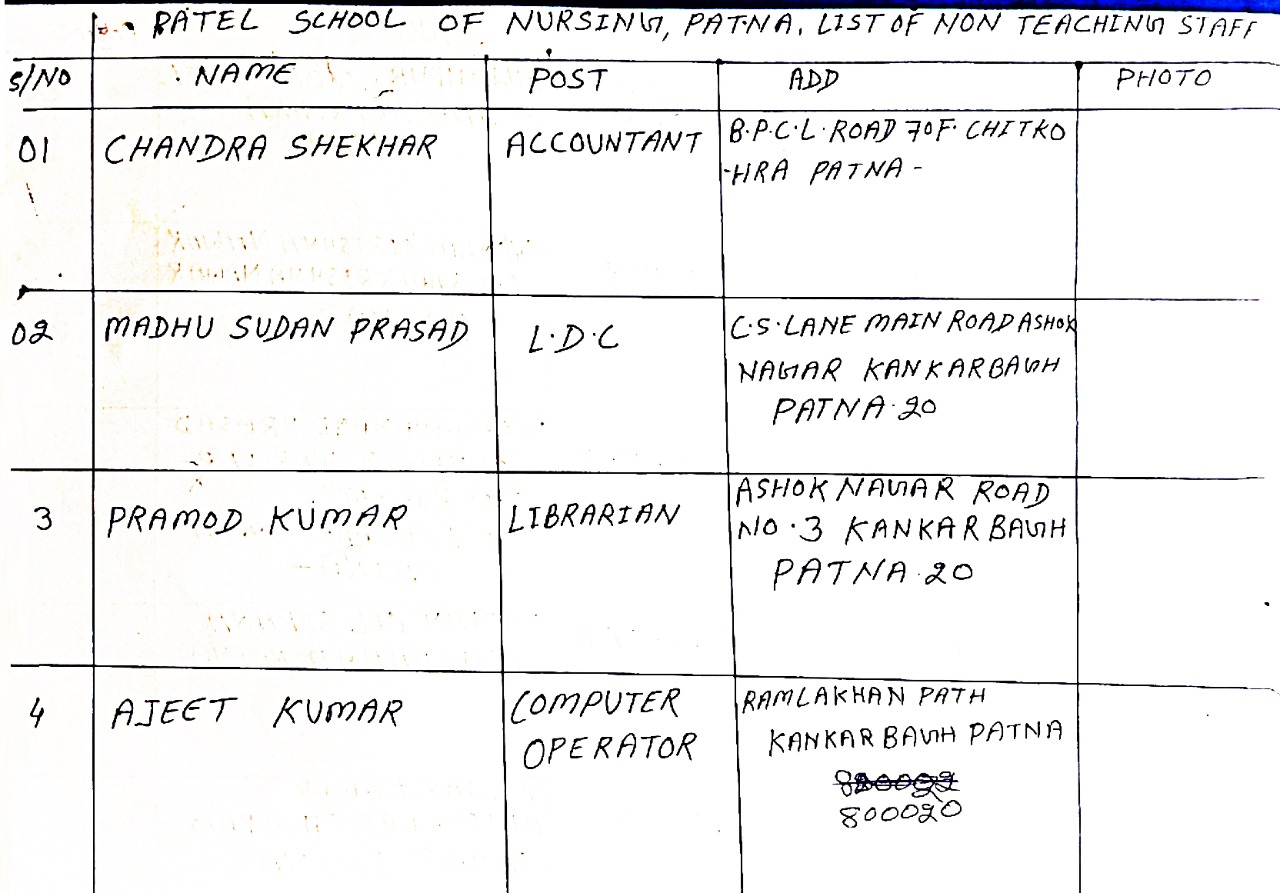 PATEL SCHOOL OF NURSING, PATNA. LIST OF NON TEACHING STAFF
S/NO NAME POST ADD PHOTO
01 CHANDRA SHEKHAR ACCOUNTANT B.P.C.L. ROAD 70F. CHITKO
-HRA PATNA -
02 MADHU SUDAN PRASAD L.D.C C.S. LANE MAIN ROAD ASHOK
NAGAR KANKARBAGH
PATNA.20
3 PRAMOD KUMAR LIBRARIAN ASHOK NAGAR ROAD
NO.3 KANKARBAGH
PATNA.20
4 AJEET KUMAR COMPUTER RAMLAKHAN PATH
OPERATOR KANKARBAGH PATNA
800020